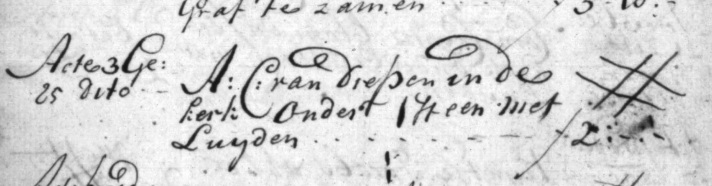 Graf te zamen 3-10:-
Acte 3 Ge:
25 dito A: C: van Diepen in de
kerk Ondert 1 Steen met
Luyden 2:-:-